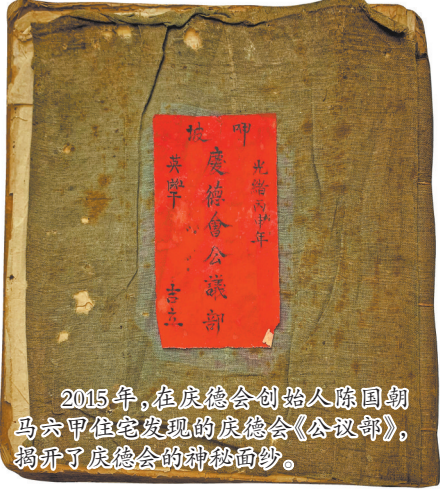 呷坡
光緒丙申年
慶德會公議部
吉立
2015年,在庆德会创始人陈国朝
马六甲住宅发现的庆德会《公议部》,
揭开了庆德会的神秘面纱。